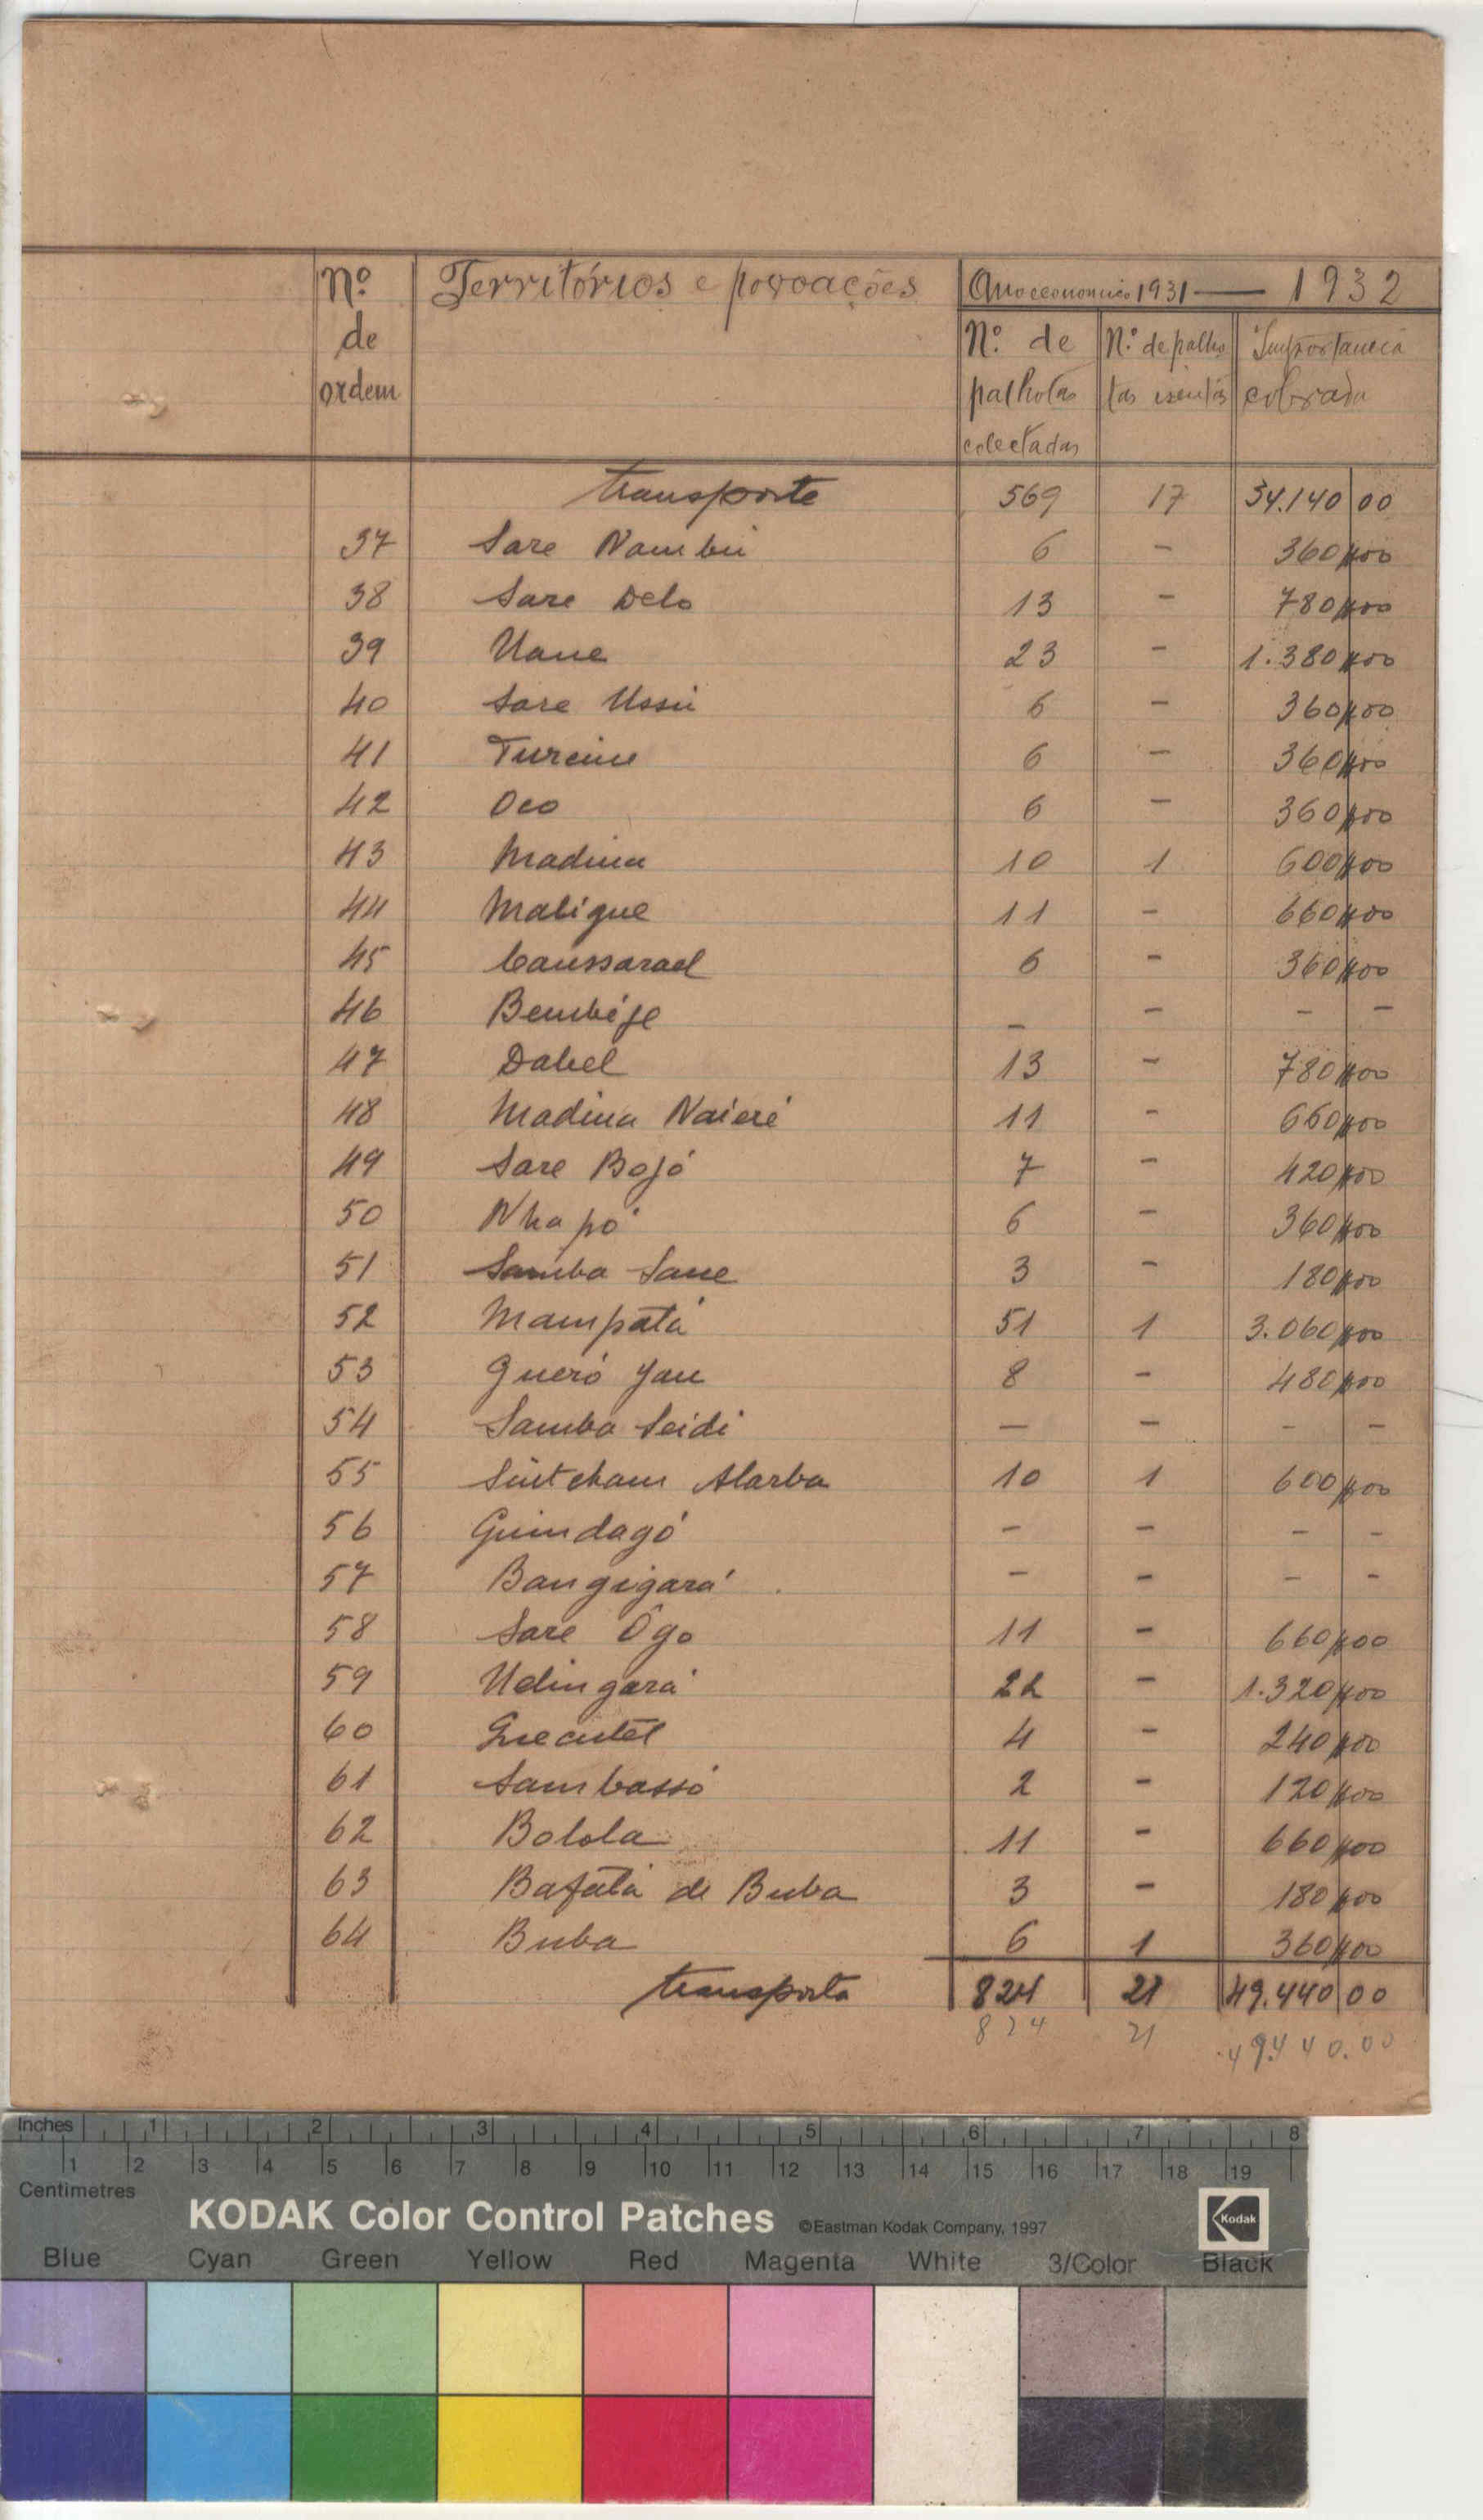 Nº de ordem Territórios e povoações Ano economico 1931 — 1932
Nº de palhotas colectadas Nº de palhotas isentas Importancia cobrada
transporte 569 17 34.140 00
37 Sare Nambú 6 - 360$00
38 Sare Delo 13 - 780$00
39 Uane 23 - 1.380$00
40 Sare Ussú 6 - 360$00
41 6 - 360$00
42 Oco 6 - 360$00
43 Madina 10 1 600$00
44 11 - 660$00
45 6 - 360$00
46 - - - -
47 13 - 780$00
48 Madina 11 - 660$00
49 Sare Bojó 7 - 420$00
50 Nhapó 6 - 360$00
51 Samba Sane 3 - 180$00
52 Mampatá 51 1 3.060$00
53 8 - 480$00
54 Samba Seidi — - - -
55 Sintcham Alarba 10 1 600$00
56 Guindagó - - - -
57 Bangigará - - - -
58 Sare Ôgo 11 - 660$00
59 22 - 1.320$00
60 4 - 240$00
61 Sambassó 2 - 120$00
62 Bolola 11 - 660$00
63 Bafatá de Buba 3 - 180$00
64 Buba 6 1 360$00
transporta 824 21 49.440 00
824 21 49440.00
Inches 1 2 3 4 5 6 7 8
1 2 3 4 5 6 7 8 9 10 11 12 13 14 15 16 17 18 19
Centimetres
KODAK Color Control Patches ©Eastman Kodak Company, 1997 Kodak
Blue Cyan Green Yellow Red Magenta White 3/Color Black